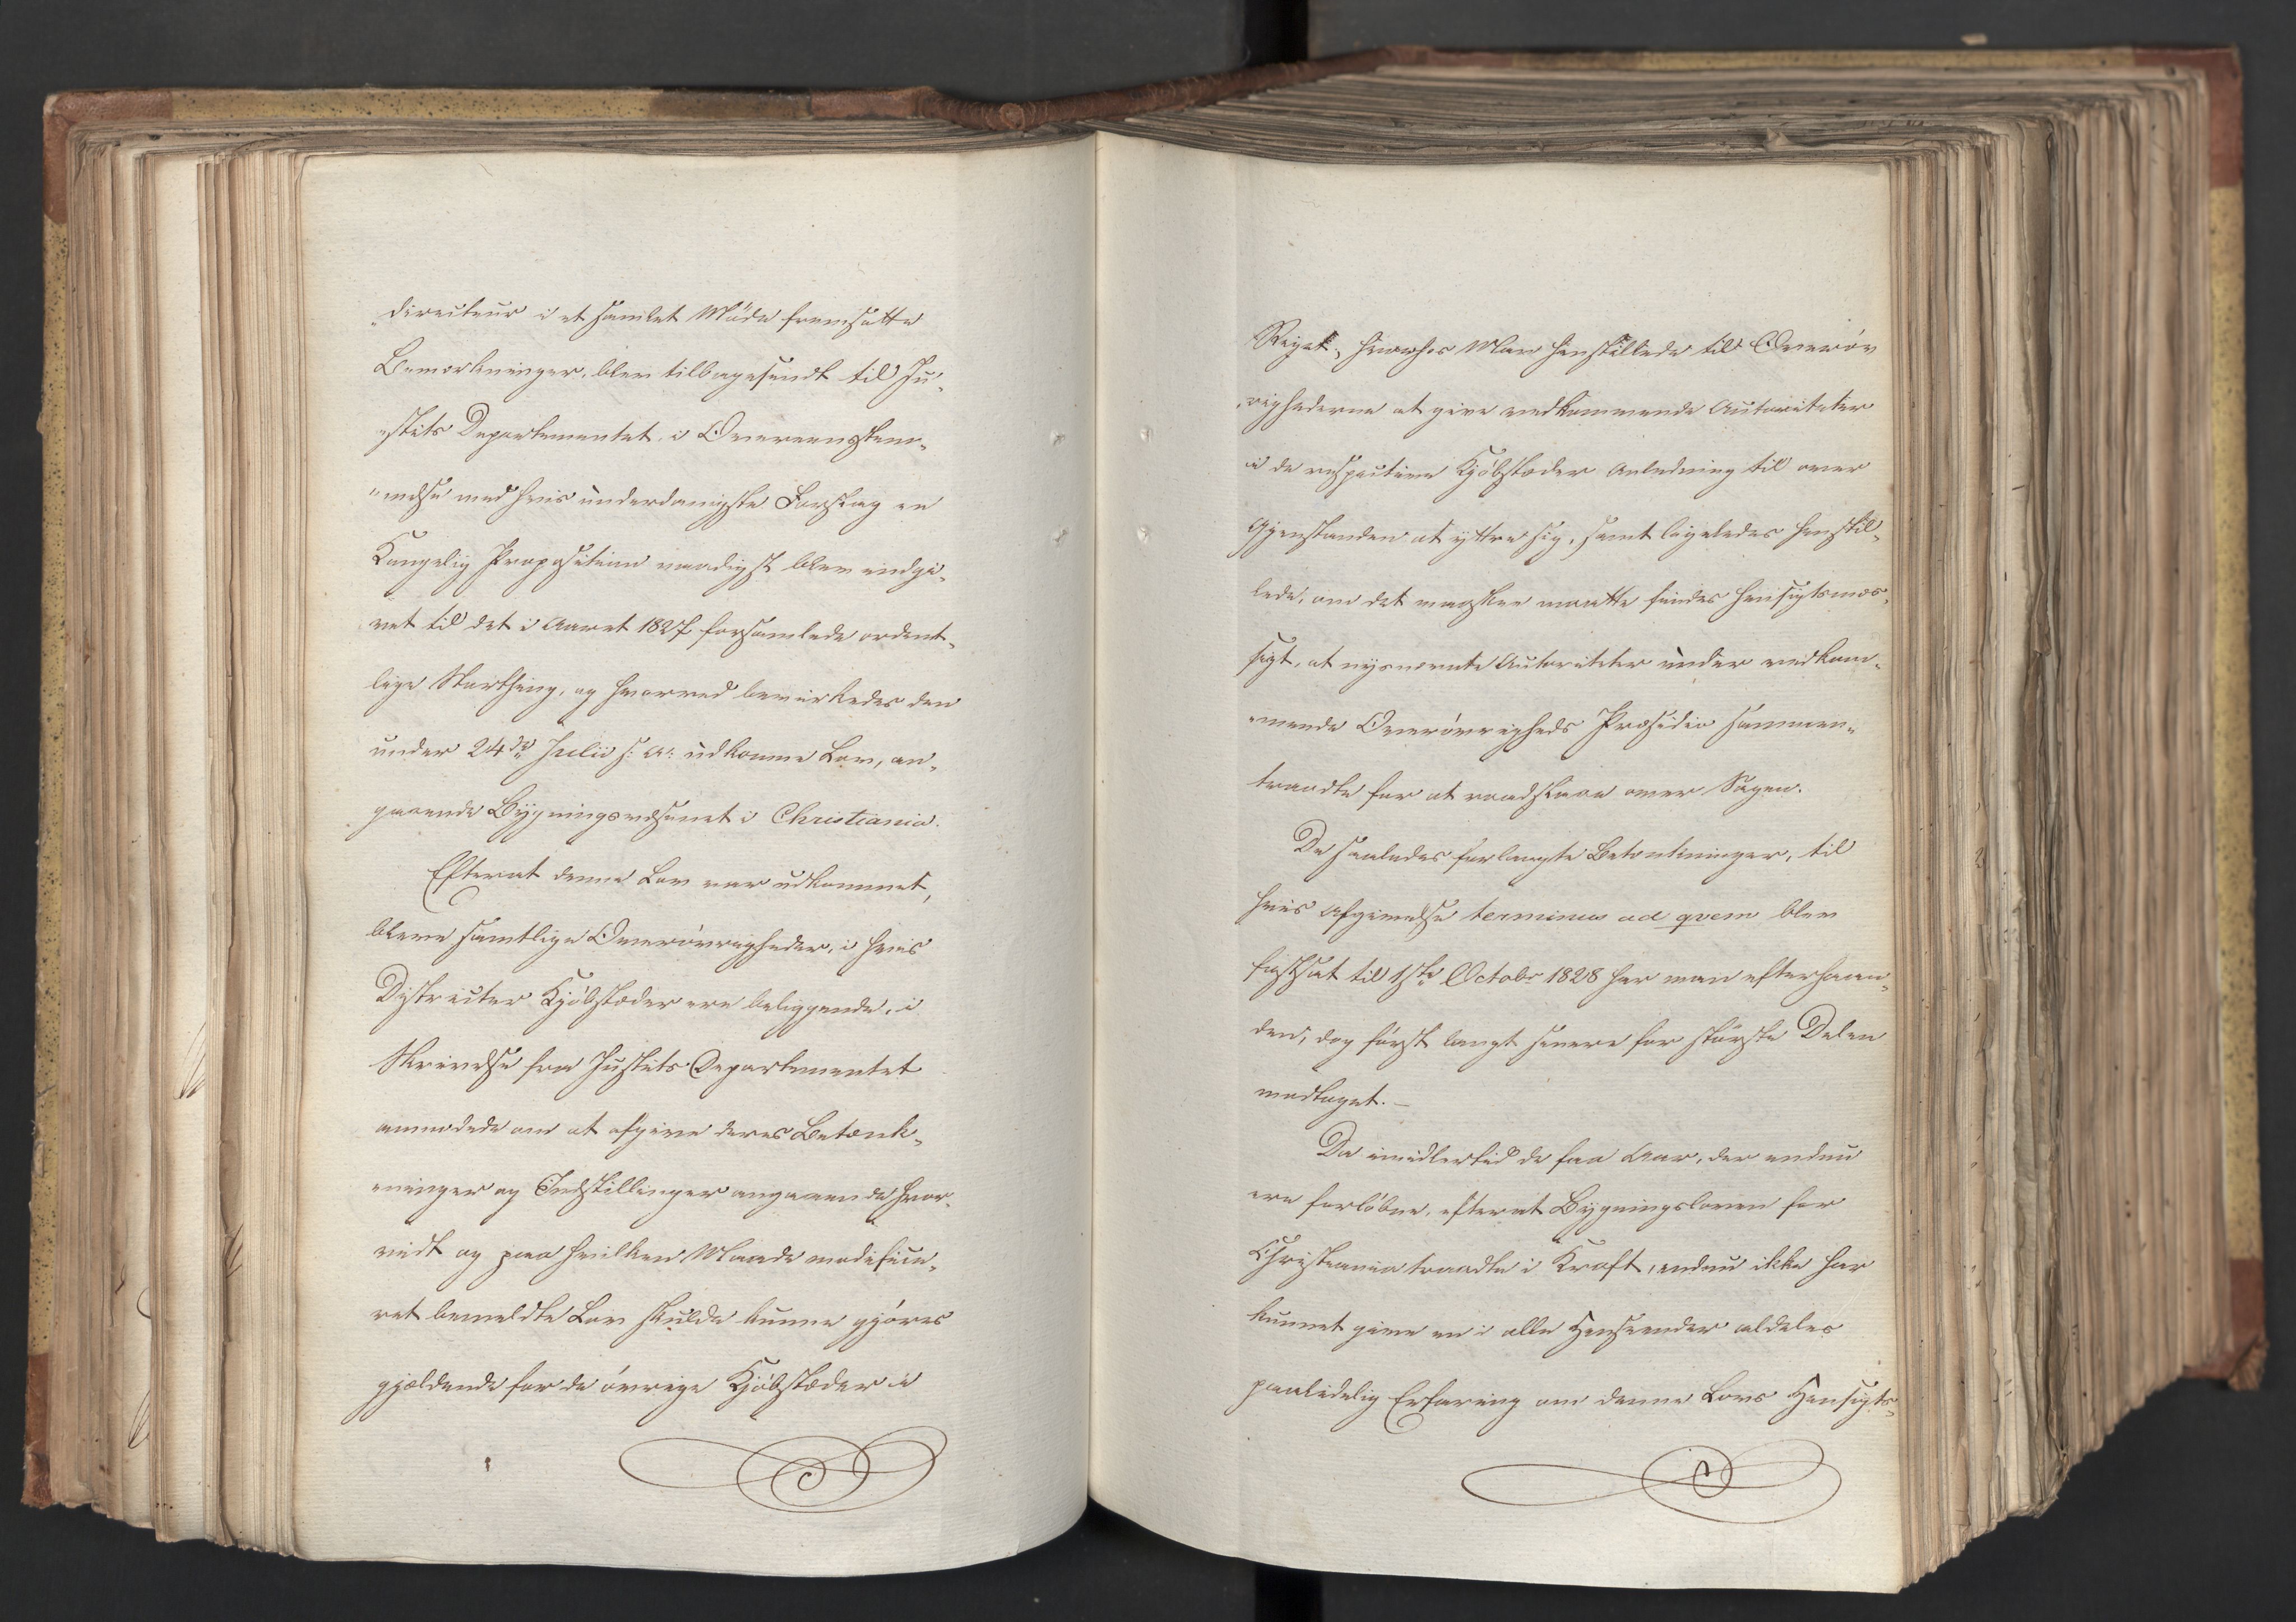 „directeur i et samlet Møde fremsatte
Bemærkninger, blev tilbagesendt til Ju„
„stits Departementet, i Overeensstem„
„melse med hvis underdanigste Forslag en
Kongelig Proposition naadigst blev indgi„
vet til det i Aaret 1827 forsamlede ordent„
lige Storthing, og hvorved bevirkedes den
under 24de Julii s: A: udkomne Lov, an„
gaaende Bygningsvæsenet i Christiania.
Efterat denne Lov var udkommet,
bleve samtlige Overøvrigheder, i hvis
Districter Kjøbstæder ere beliggende, i
Skrivelse fra Justits Departementet
anmodede om at afgive deres Betænk„
„ninger og Indstillinger angaaende hvor„
vidt og paa hvilken Maade modifice„
ret bemeldte Lov skulde kunne gjøres
gjældende for de øvrige Kjøbstæder i
Riget, hvorhos Man henstillede til Overøv
„righederne at give vedkommende Autoriteter
i de respective Kjøbstæder Anledning til over
Gjenstanden at yttre sig, samt ligeledes henstil„
lede, om det maaskee maatte findes hensigtsmæs„
sigt, at nysnævnte Autoriteter under vedkom„
„mende Overøvrigheds Præsidio sammen„
traadte for at raadslaae over Sagen.
De saaledes forlangte Betænkninger, til
hvis Afgivelse terminus ad qvem blev
fastsat til 1ste Octobr 1828 har man efterhaan„
den, dog først langt senere for største Delen
modtaget. –
Da imidlertid de faa Aar, der endnu
ere forløbne, efterat Bygningsloven for
Christiania traadte i Kraft, endnu ikke har
kunnet give en i alle Henseender aldeles
paalidelig Erfaring om denne Lovs Hensigts„